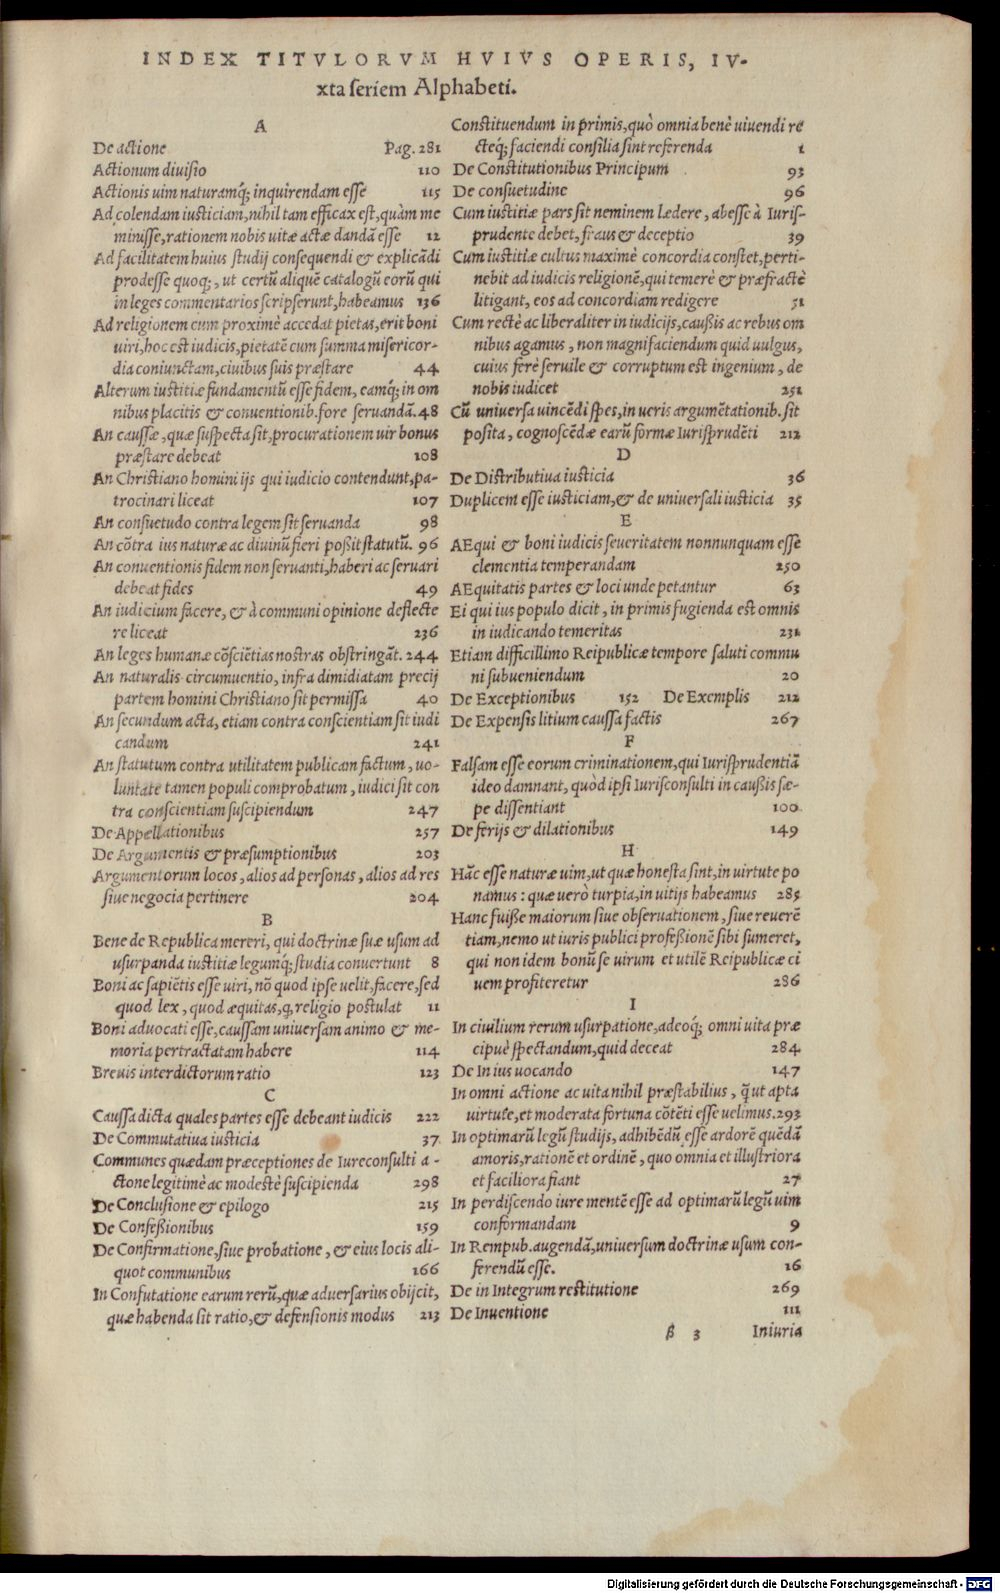 INDEX TITVLORVM HVIVS OPERIS, IV-
xta seriem Alphabeti.
A
De actione Pag. 281
Actionum diuisio 110
Actionis uim naturamq́; inquirendam esse 115
Ad colendam iusticiam, nihil tam efficax est, quàm me
minisse, rationem nobis uitæ actæ dandã esse 12
Ad facilitatem huius studij consequendi & explicãdi
prodesse quoq;, ut certũ aliquẽ catalogũ eorũ qui
in leges commentarios scripserunt, habeamus 136
Ad religionem cum proximè accedat pietas, erit boni
uiri, hoc est iudicis, pietatẽ cum summa misericor-
dia coniunctam, ciuibus suis præstare 44
Alterum iustitiæ fundamentũ esse fidem, eamq́; in om
nibus placitis & conuentionib. fore seruandã. 48
An caussæ, quæ suspecta sit, procurationem uir bonus
præstare debeat 108
An Christiano homini ijs qui iudicio contendunt, pa-
trocinari liceat 107
An consuetudo contra legem sit seruanda 98
An cõtra ius naturæ ac diuinũ fieri poßit statutũ. 96
An conuentionis fidem non seruanti, haberi ac seruari
debeat fides 49
An iudicium facere, & à communi opinione deflecte
re liceat 236
An leges humanæ cõsciẽtias nostras obstringãt. 244
An naturalis circumuentio, infra dimidiatam precij
partem homini Christiano sit permissa 40
An secundum acta, etiam contra conscientiam sit iudi
candum 241
An statutum contra utilitatem publicam factum, uo-
luntate tamen populi comprobatum, iudici sit con
tra conscientiam suscipiendum 247
De Appellationibus 257
De Argumentis & præsumptionibus 203
Argumentorum locos, alios ad personas, alios ad res
siue negocia pertinere 204
B
Bene de Republica mereri, qui doctrinæ suæ usum ad
usurpanda iustitiæ legumq́; studia conuertunt 8
Boni ac sapiẽtis esse uiri, nõ quod ipse uelit, facere, sed
quod lex, quod æquitas, q, religio postulat 11
Boni aduocati esse, caussam uniuersam animo & me-
moria pertractatam habere 114
Breuis interdictorum ratio 123
C
Caussa dicta quales partes esse debeant iudicis 222
De Commutatiua iusticia 37
Communes quædam præceptiones de Iureconsulti a-
ctone legitimè ac modestè suscipienda 298
De Conclusione & epilogo 215
De Confeßionibus 159
De Confirmatione, siue probatione, & eius locis ali-
quot communibus 166
In Confutatione earum rerũ, quæ aduersarius obijcit,
quæ habenda sit ratio, & defensionis modus 213
Constituendum in primis, quò omnia benè uiuendi re
cteq́; faciendi consilia sint referenda 1
De Constitutionibus Principum 93
De consuetudine 96
Cum iustitiæ pars sit neminem Ledere, abesse à Iuris-
prudente debet, fraus & deceptio 39
Cum iustitiæ cultus maximè concordia constet, perti-
nebit ad iudicis religionẽ, qui temerè & præfractè
litigant, eos ad concordiam redigere 51
Cum rectè ac liberaliter in iudicijs, caußis ac rebus om
nibus agamus, non magni faciendum quid uulgus,
cuius ferè seruile & corruptum est ingenium, de
nobis iudicet 251
Cũ uniuersa uincẽdi spes, in ueris argumẽtationib. sit
posita, cognoscẽdæ earũ formæ Iurisprudẽti 212
D
De Distributiua iusticia 36
Duplicem esse iusticiam, & de uniuersali iusticia 35
E
AEqui & boni iudicis seueritatem nonnunquam esse
clementia temperandam 250
AEquitatis partes & loci unde petantur 63
Ei qui ius populo dicit, in primis fugienda est omnis
in iudicando temeritas 231
Etiam difficillimo Reipublicæ tempore saluti commu
ni subueniendum 20
De Exceptionibus 152 De Exemplis 212
De Expensis litium caussa factis 267
F
Falsam esse eorum criminationem, qui Iurisprudentiã
ideo damnant, quòd ipsi Iurisconsulti in caußis sæ-
pe dissentiant 100
De ferijs & dilationibus 149
H
Hãc esse naturæ uim, ut quæ honesta sint, in uirtute po
namus: quæ uerò turpia, in uitijs habeamus 285
Hanc fuiße maiorum siue obseruationem, siue reuerẽ
tiam, nemo ut iuris publici profeßionẽ sibi sumeret,
qui non idem bonũ se uirum et utilẽ Reipublicæ ci
uem profiteretur 286
I
In ciuilium rerum usurpatione, adeoq́; omni uita præ
cipuè spectandum, quid deceat 284
De In ius uocando 147
In omni actione ac uita nihil præstabilius, q̃ ut apta
uirtute, et moderata fortuna cõtẽti esse uelimus. 293
In optimarũ legũ studijs, adhibẽdũ esse ardorẽ quẽdã
amoris, rationẽ et ordinẽ, quo omnia et illustriora
et faciliora fiant 27
In perdiscendo iure mentẽ esse ad optimarũ legũ uim
conformandam 9
In Rempub. augendã, uniuersum doctrinæ usum con-
ferendũ esse. 16
De in Integrum restitutione 269
De Inuentione 111
ß 3 Iniuria
Digitalisierung gefördert durch die Deutsche Forschungsgemeinschaft - DFG